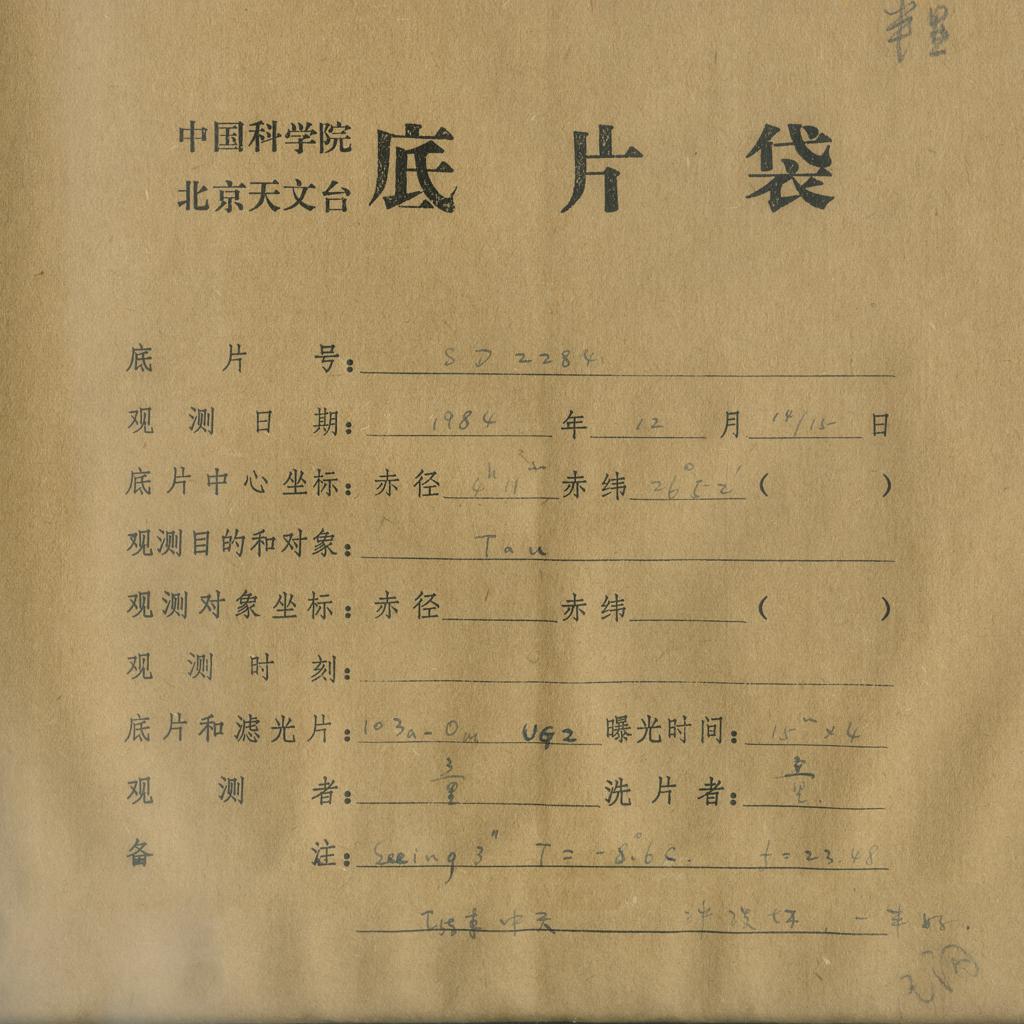 中国科学院
北京天文台
底片袋
底片号: SD2284
观测日期: 1984年12月14/15日
底片中心坐标: 赤径 4h 11m 赤纬 26°52′ ( )
观测目的和对象: Tau
观测对象坐标: 赤径 赤纬 ( )
观测时刻:
底片和滤光片: 103a-O UG2 曝光时间: 15m×4
观测者: 洗片者:
备注: Seeing 3" T = -8.6°C. f=23.48
中天 一半好.